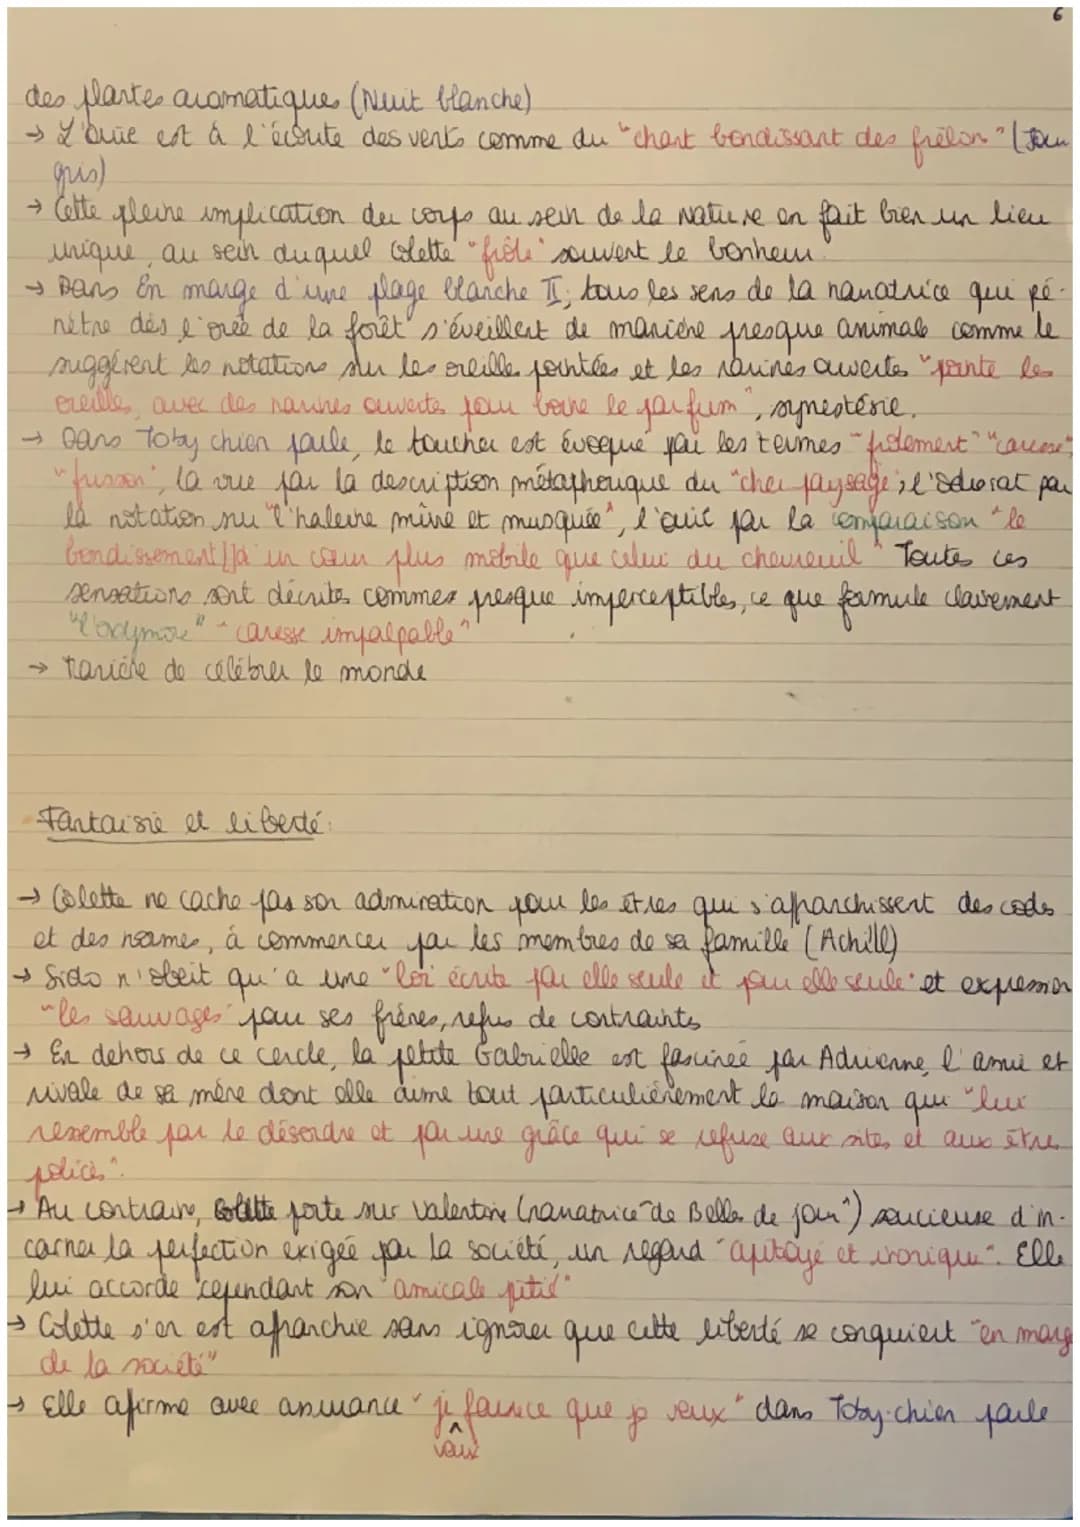 6
des plantes aromatiques (Nuit blanche)
→ L'ouïe est à l'écoute des vents comme du "chant bondissant des frelons" (Jour
gris)
→ Cette pleine implication du corps au sein de la nature en fait bien un lieu
unique, au sein duquel Colette "frôle" souvent le bonheur.
→ Dans En marge d'une plage blanche II, tous les sens de la narratrice qui pé-
nètre dès l'orée de la forêt s'éveillent de manière presque animale comme le
suggèrent les notations sur les oreilles pointées et les narines ouvertes "pointe les
oreilles, avec des narines ouvertes pour boire le parfum", synestésie.
→ Dans Toby chien parle, le toucher est évoqué par les termes "frôlement" "caresse",
"frisson", la vue par la description métaphorique du "cher paysage", l'odorat par
la notation sur "l'haleine mûre et musquée", l'ouïe par la comparaison "le
bondissement [] d'un cœur plus mobile que celui du chevreuil" Toutes ces
sensations sont décrites commes presque imperceptibles, ce que formule clairement
"caresse impalpable"
→ Manière de célébrer le monde
Fantaisie et liberté:
→ Colette ne cache pas son admiration pour les êtres qui s'affranchissent des codes
et des normes, à commencer par les membres de sa famille (Achill)
→ Sido n'obéit qu'a une "loi écrite par elle seule et pour elle seule" et expression
"les sauvages" pour ses frères, refus de contraintes
→ En dehors de ce cercle, la petite Gabrielle est fascinée par Adrienne, l'amie et
rivale de sa mère dont elle aime tout particulièrement la maison qui "lui
ressemble par le désordre et par une grâce qui se refuse aux sites et aux êtres
policés".
→ Au contraire, Colette porte sur Valentine (narratrice de Belles de jour") soucieuse d'in-
carner la perfection exigée par la société, un regard "apitoyé et ironique". Elle
lui accorde cependant son "amicale pitié"
→ Colette s'en est afranchie sans ignorer que cette liberté se conquiert "en marge
de la société"
→ Elle afirme avec assurance "je faire ce que je veux" dans Toby-chien parle
veux